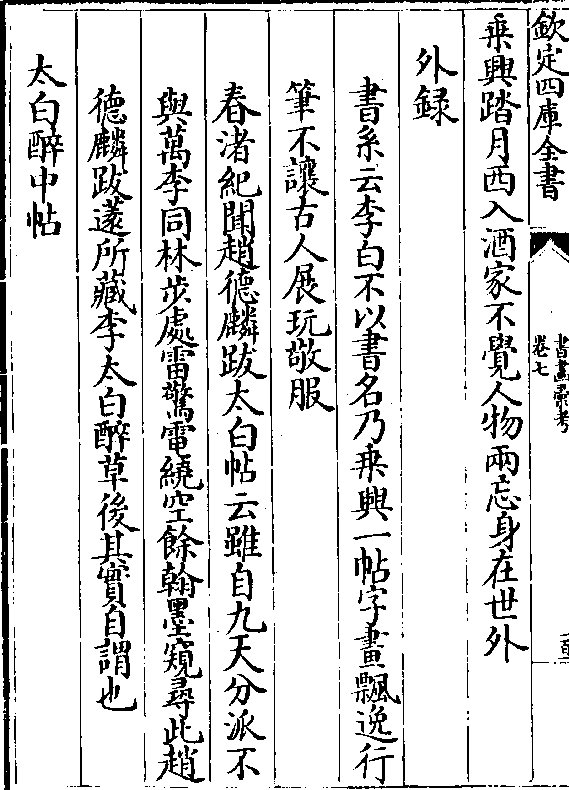 欽定四庫全書
書畫彙考
卷七
乗興踏月西入酒家不覺人物兩忘身在世外
外録
書系云李白不以書名乃乗興一帖字畫飄逸行
筆不讓古人展玩敬服
春渚紀聞趙德麟跋太白帖云雖自九天分派不
與萬李同林歩處雷驚電繞空餘翰墨窺尋此趙
德麟跋薳所藏李太白醉草後其實自謂也
太白醉中帖